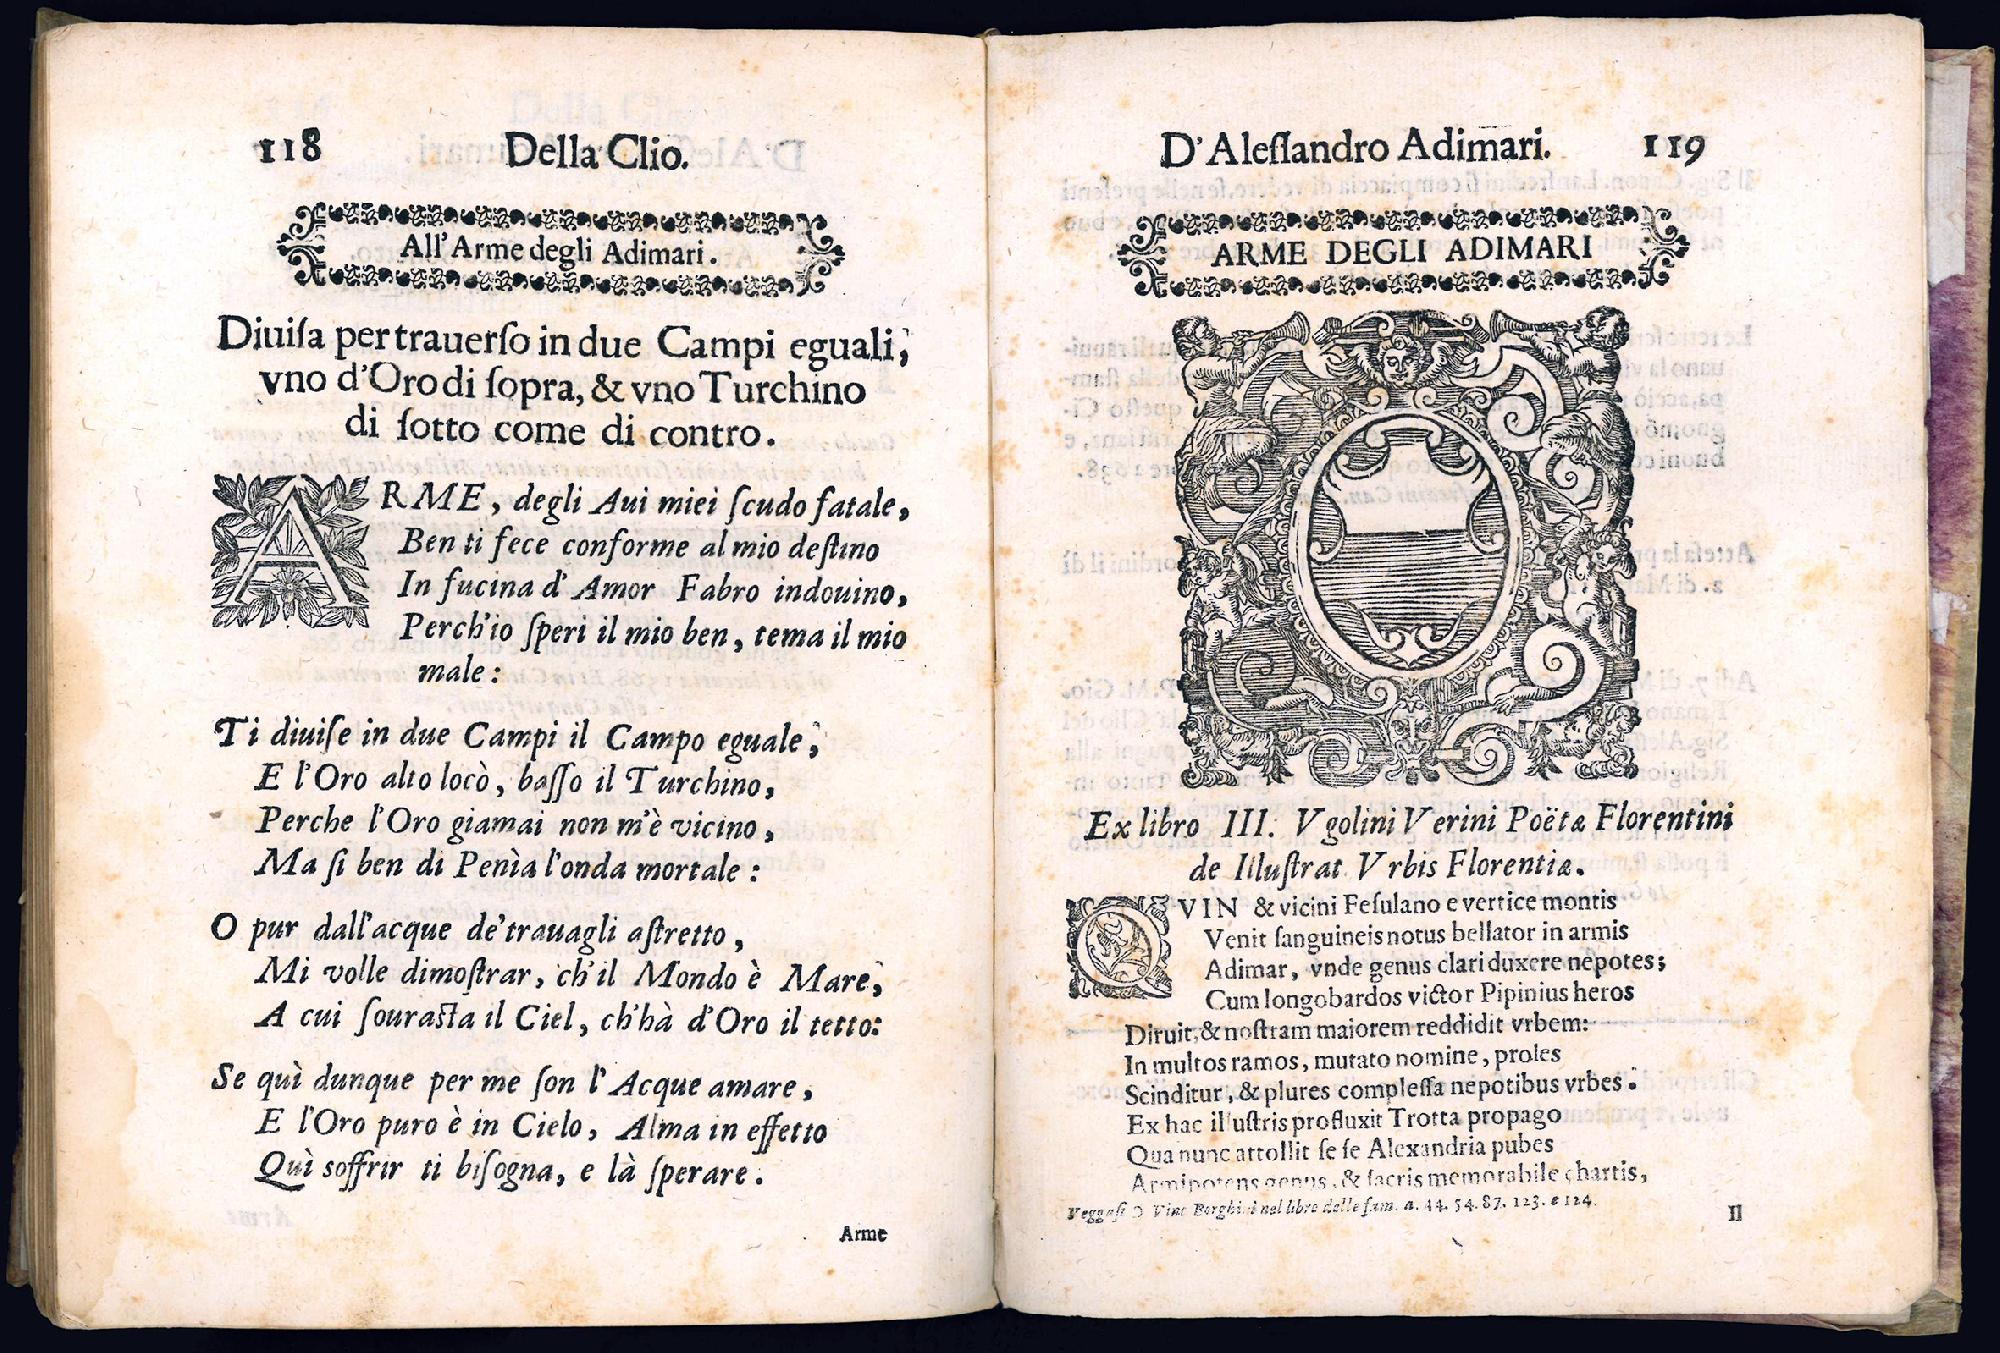 118 Della Clio.
All'Arme degli Adimari.
Diuiſa per trauerſo in due Campi eguali,
vno d'Oro di ſopra, & vno Turchino
di ſotto come di contro.
ARME, degli Aui miei ſcudo fatale,
Ben ti fece conforme al mio deſtino
In fucina d'Amor Fabro indouino,
Perch'io ſperi il mio ben, tema il mio
male:
Ti diuiſe in due Campi il Campo eguale,
E l'Oro alto locò, baſſo il Turchino,
Perche l'Oro giamai non m'è vicino,
Ma ſi ben di Penìa l'onda mortale:
O pur dall'acque de'trauagli aſtretto,
Mi volle dimoſtrar, ch'il Mondo è Mare,
A cui ſouraſta il Ciel, ch'hà d'Oro il tetto:
Se quì dunque per me ſon l'Acque amare,
E l'Oro puro è in Cielo, Alma in effetto
Quì soffrir ti biſogna, e là ſperare.
Arme
D'Aleſſandro Adimari. 119
ARME DEGLI ADIMARI
Ex libro III. Vgolini Verini Poëtæ Florentini
de Illuſtrat Vrbis Florentiæ.
QVIN & vicini Feſulano e vertice montis
Venit ſanguineis notus bellator in armis
Adimar, vnde genus clari duxere nepotes;
Cum longobardos victor Pipinius heros
Diruit, & noſtram maiorem reddidit vrbem:
In multos ramos, mutato nomine, proles
Scinditur, & plures complеſſa nepotibus vrbes.
Ex hac illuſtris profluxit Trotta propago
Qua nunc attollit ſe ſe Alexandria pubes
Armipotens genus, & ſacris memorabile chartis,
Veggaſi D Vinc Borghini nel libro delle fam. a. 44. 54. 87. 123. e 124
Il